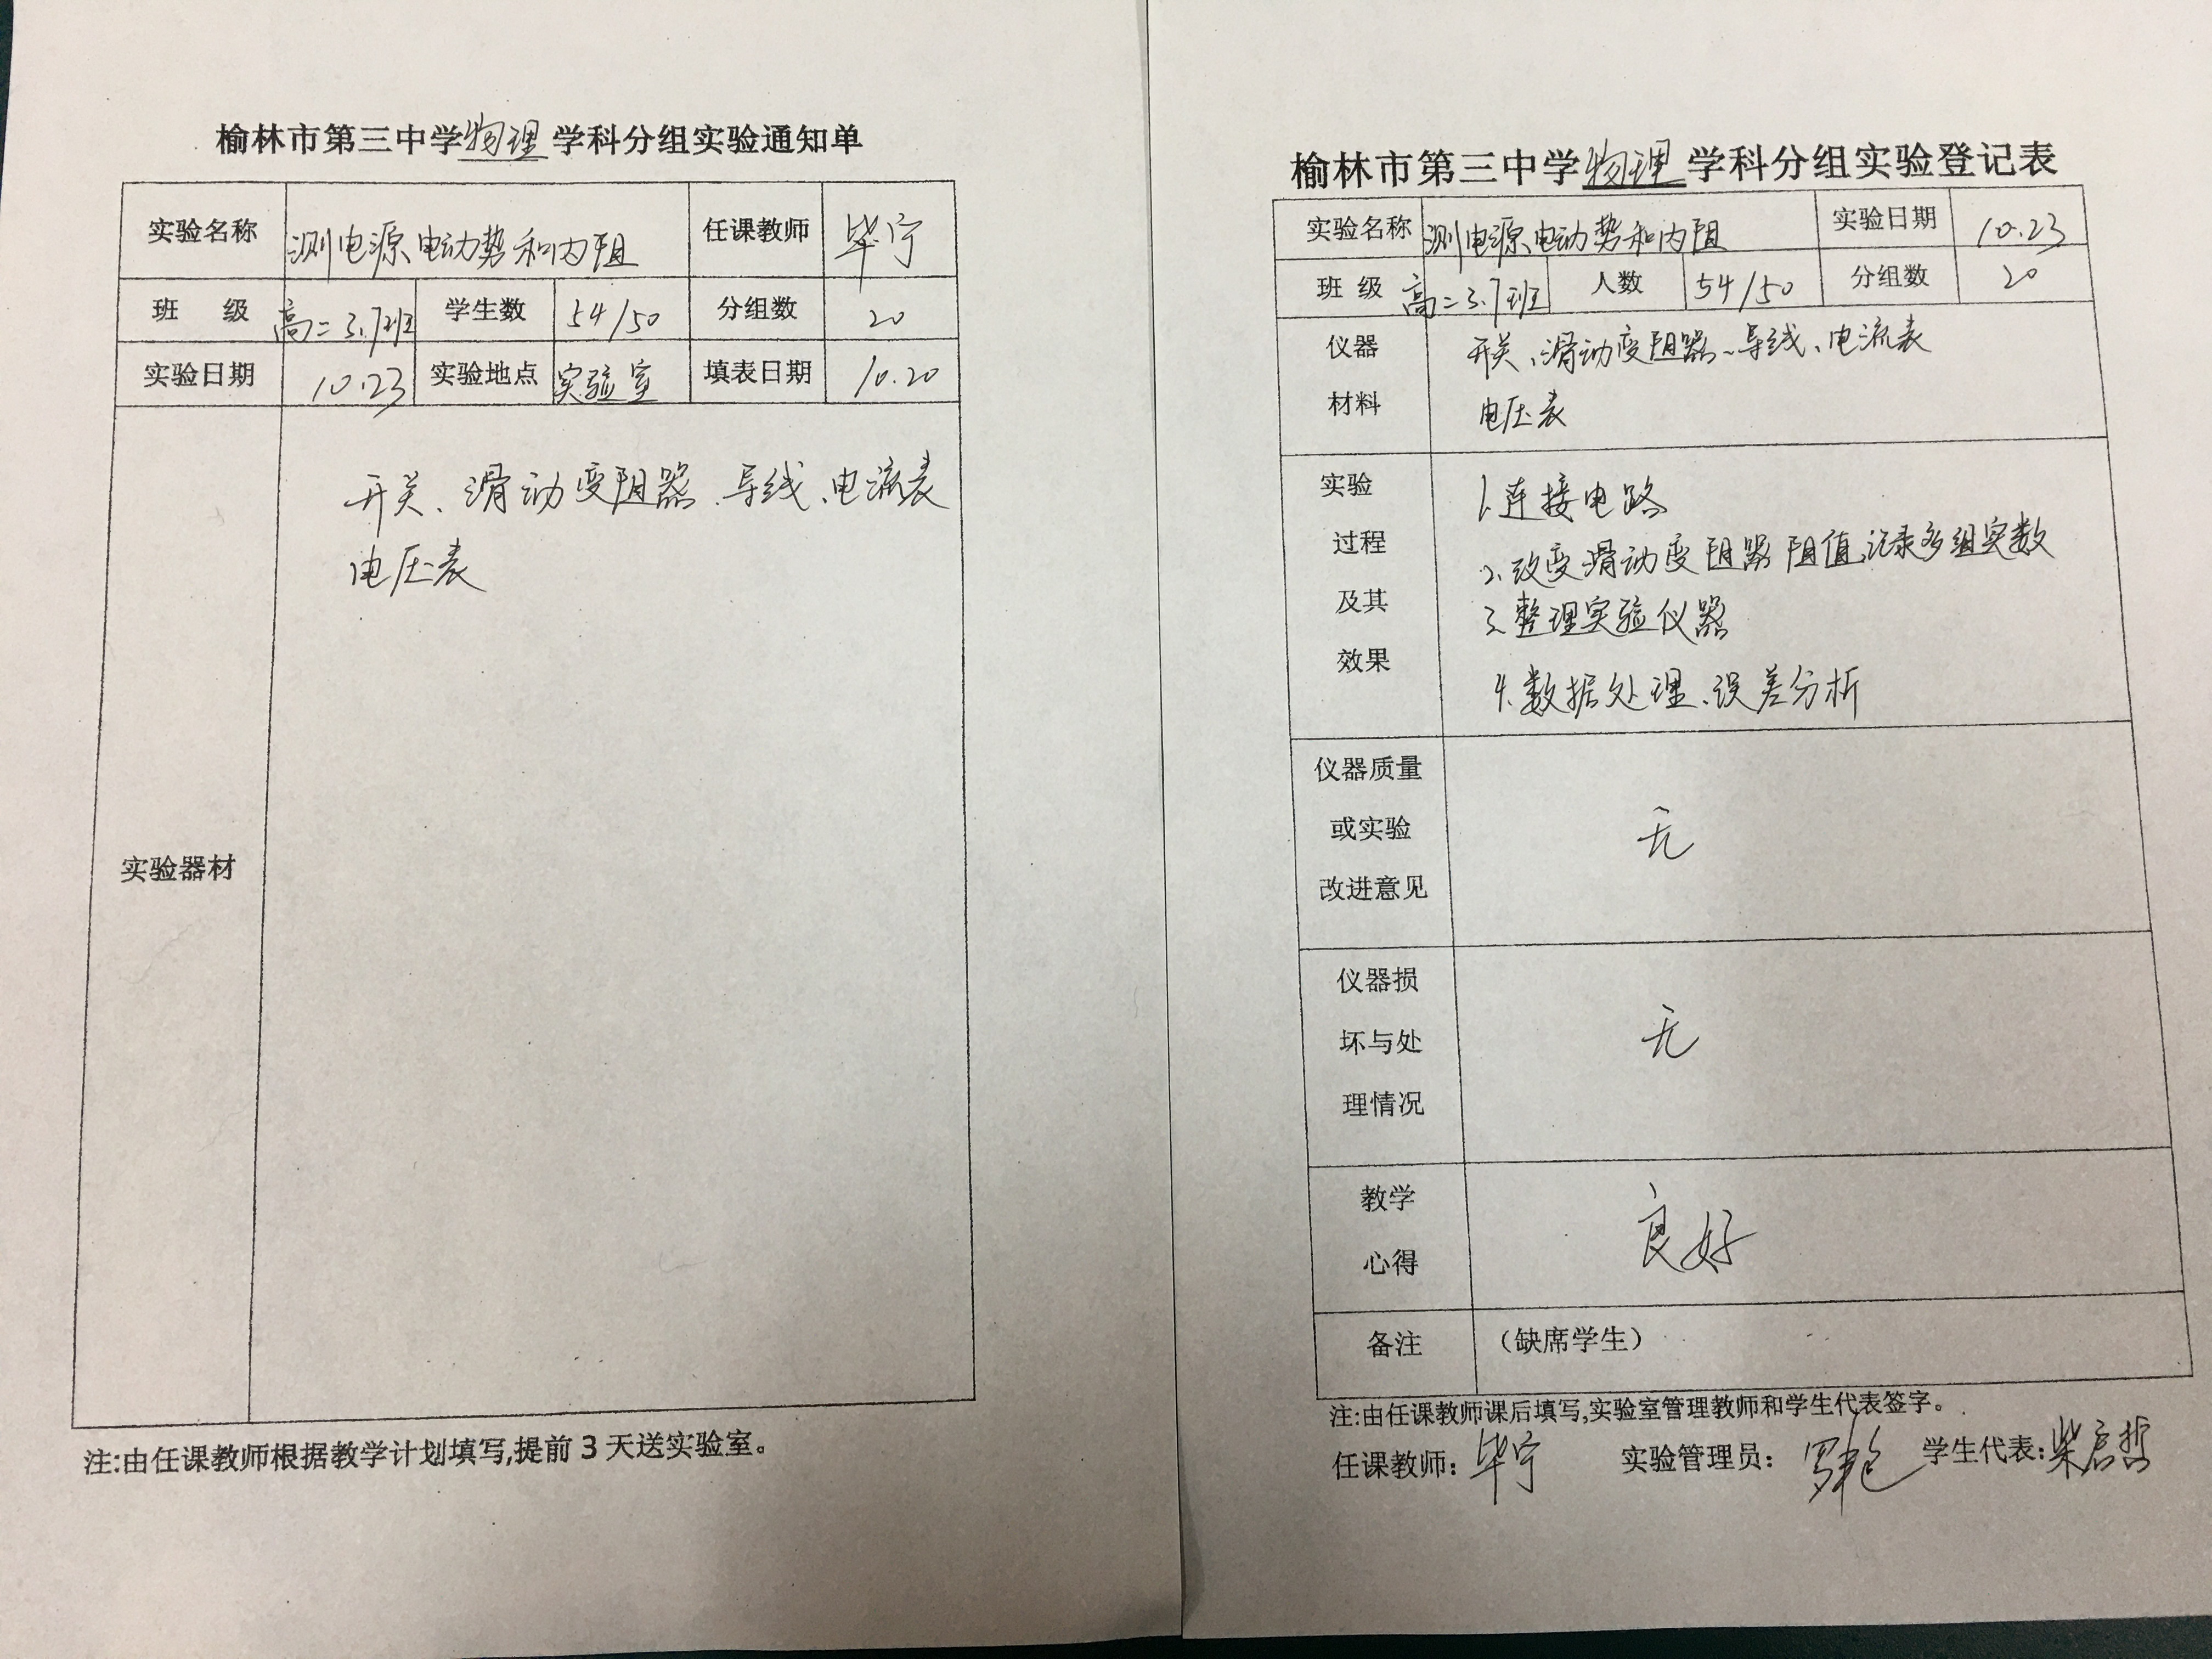 榆林市第三中学物理学科分组实验通知单
实验名称 测电源电动势和内阻 任课教师 毕宁
班 级 高二3.7班 学生数 54/50 分组数 20
实验日期 10.23 实验地点 实验室 填表日期 10.20
实验器材
开关、滑动变阻器、导线、电流表
电压表
注:由任课教师根据教学计划填写,提前3天送实验室。
榆林市第三中学物理学科分组实验登记表
实验名称 测电源电动势和内阻 实验日期 10.23
班 级 高二3.7班 人数 54/50 分组数 20
仪器
材料
开关、滑动变阻器、导线、电流表
电压表
实验
过程
及其
效果
1.连接电路
2.改变滑动变阻器阻值,记录多组实数
3.整理实验仪器
4.数据处理、误差分析
仪器质量
或实验
改进意见
无
仪器损
坏与处
理情况
无
教学
心得
良好
备注 （缺席学生）
注:由任课教师课后填写,实验室管理教师和学生代表签字。
任课教师: 毕宁 实验管理员: 学生代表: 柴启哲